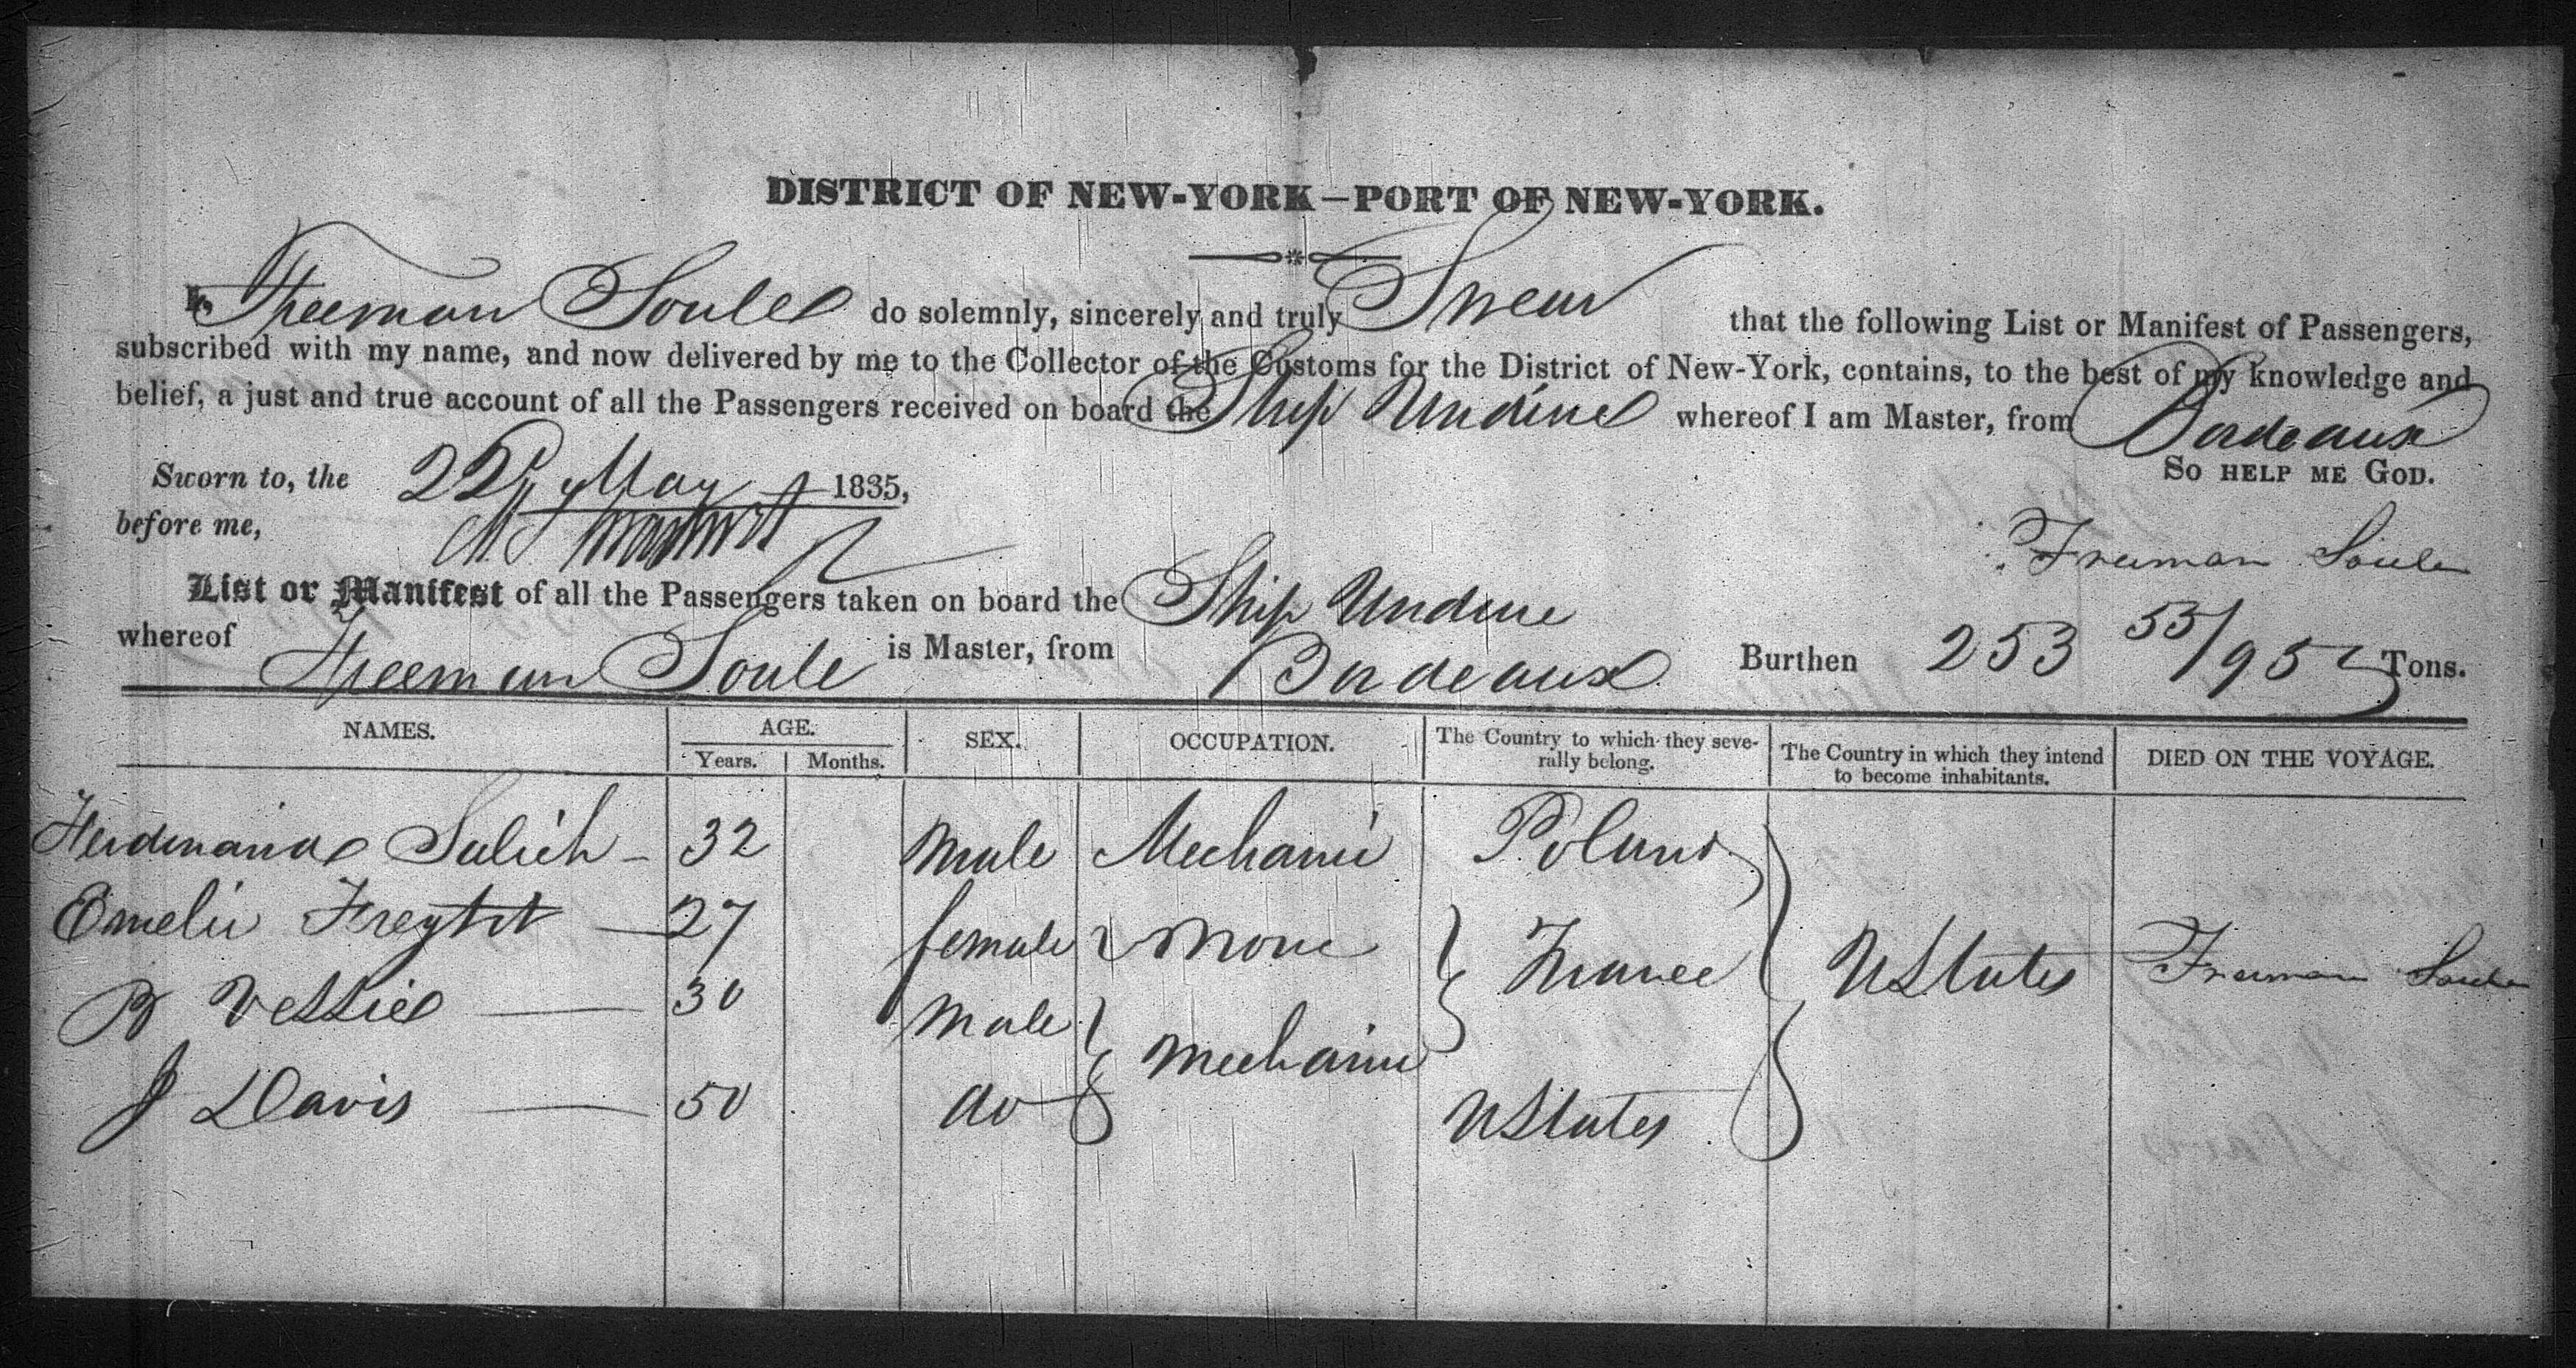 DISTRICT OF NEW-YORK—PORT OF NEW-YORK.
I, Freeman Soule do solemnly, sincerely and truly Swear that the following List or Manifest of Passengers,
subscribed with my name, and now delivered by me to the Collector of the Customs for the District of New-York, contains, to the best of my knowledge and
belief, a just and true account of all the Passengers received on board the Ship Undine whereof I am Master, from Bordeaux
So HELP ME GOD.
Sworn to, the 22 May 1835,
before me,
Freeman Soule
List or Manifest of all the Passengers taken on board the Ship Undine
whereof Freeman Soule is Master, from Bordeaux Burthen 253 53/95 Tons.
NAMES. AGE. SEX. OCCUPATION. The Country to which they seve-rally belong. The Country in which they intend to become inhabitants. DIED ON THE VOYAGE.
Years. Months.
Ferdinand 32 Male Mechanic Poland
Emelie 27 female None
France UStates Freeman Soule
B 30 Male
Mechanic
J Davis 50 do UStates